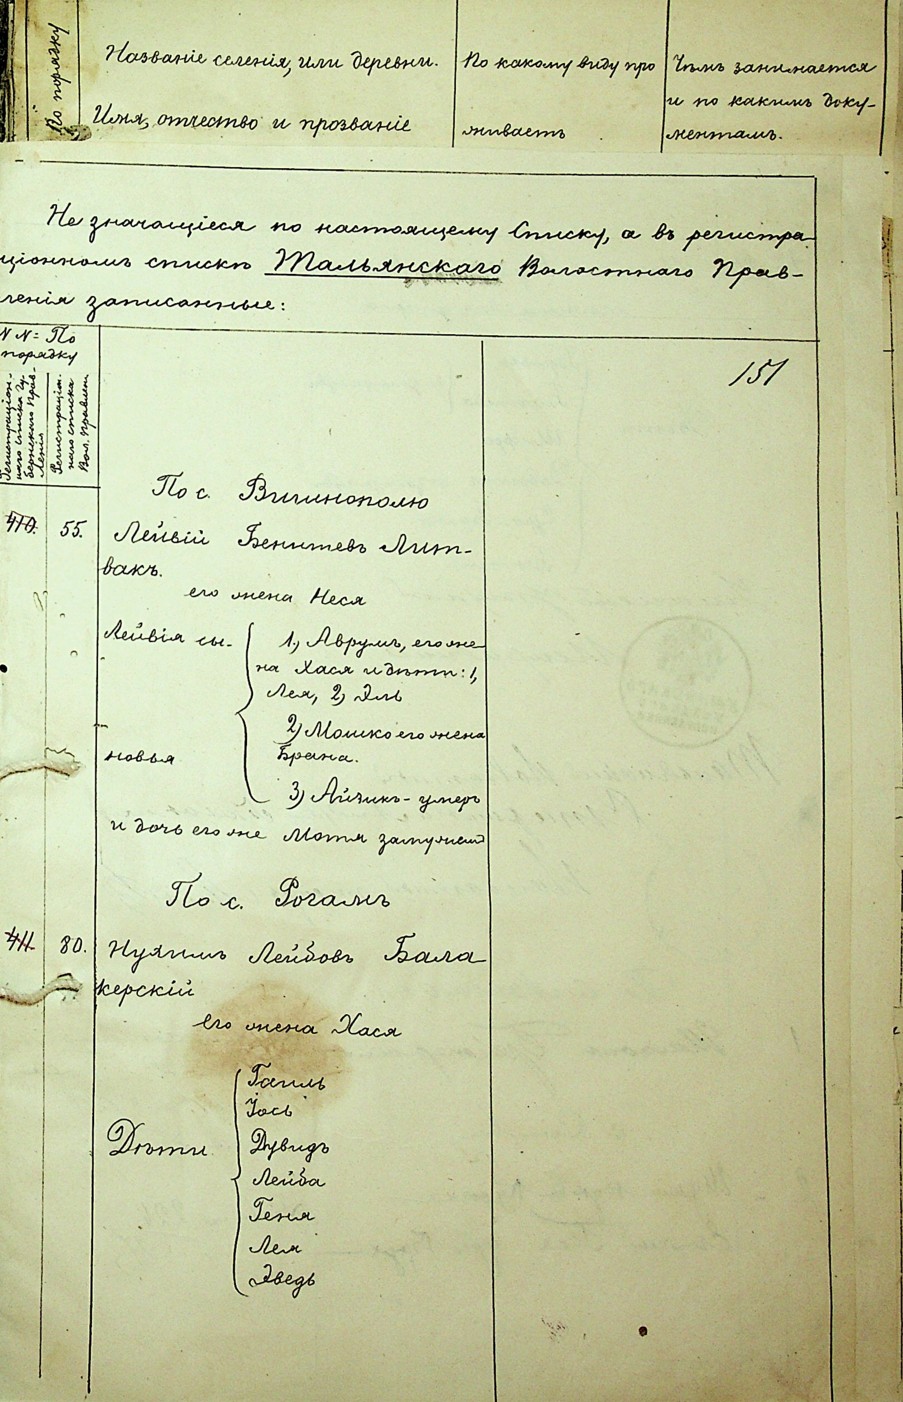 По порядку
Названіе селенія, или деревни.
Имя, отчество и прозваніе
По какому виду про
живаетъ
Чѣмъ занимается
и по какимъ доку-
ментамъ.
Не значащіеся по настоящему Списку, а въ регистра-
ціонномъ спискѣ Тальянскаго Волостнаго Прав-
ленія записанные:
N N= По
порядку
Регистраціон-
наго списка Гу-
бернскаго Прав-
ленія
Регистраціон.
наго списка
Вол. Правлен.
151
По с. Вишнополю
410. 55. Лейвій Бенитевъ Лит-
вакъ.
его жена Неся
Лейвія сы-
новья
1) Аврумъ, его же-
на Хася и дѣти: 1,
Лея, 2) Эль
2) Мошко его жена
Брана.
3) Айзикъ - умеръ
и дочь его же Мотя замужем
По с. Рогамъ
411. 80. Нухимъ Лейбовъ Бала
керскій
его жена Хася
Дѣти
Гаиль
Іось
Дувидъ
Лейба
Геня
Лея
Эведь